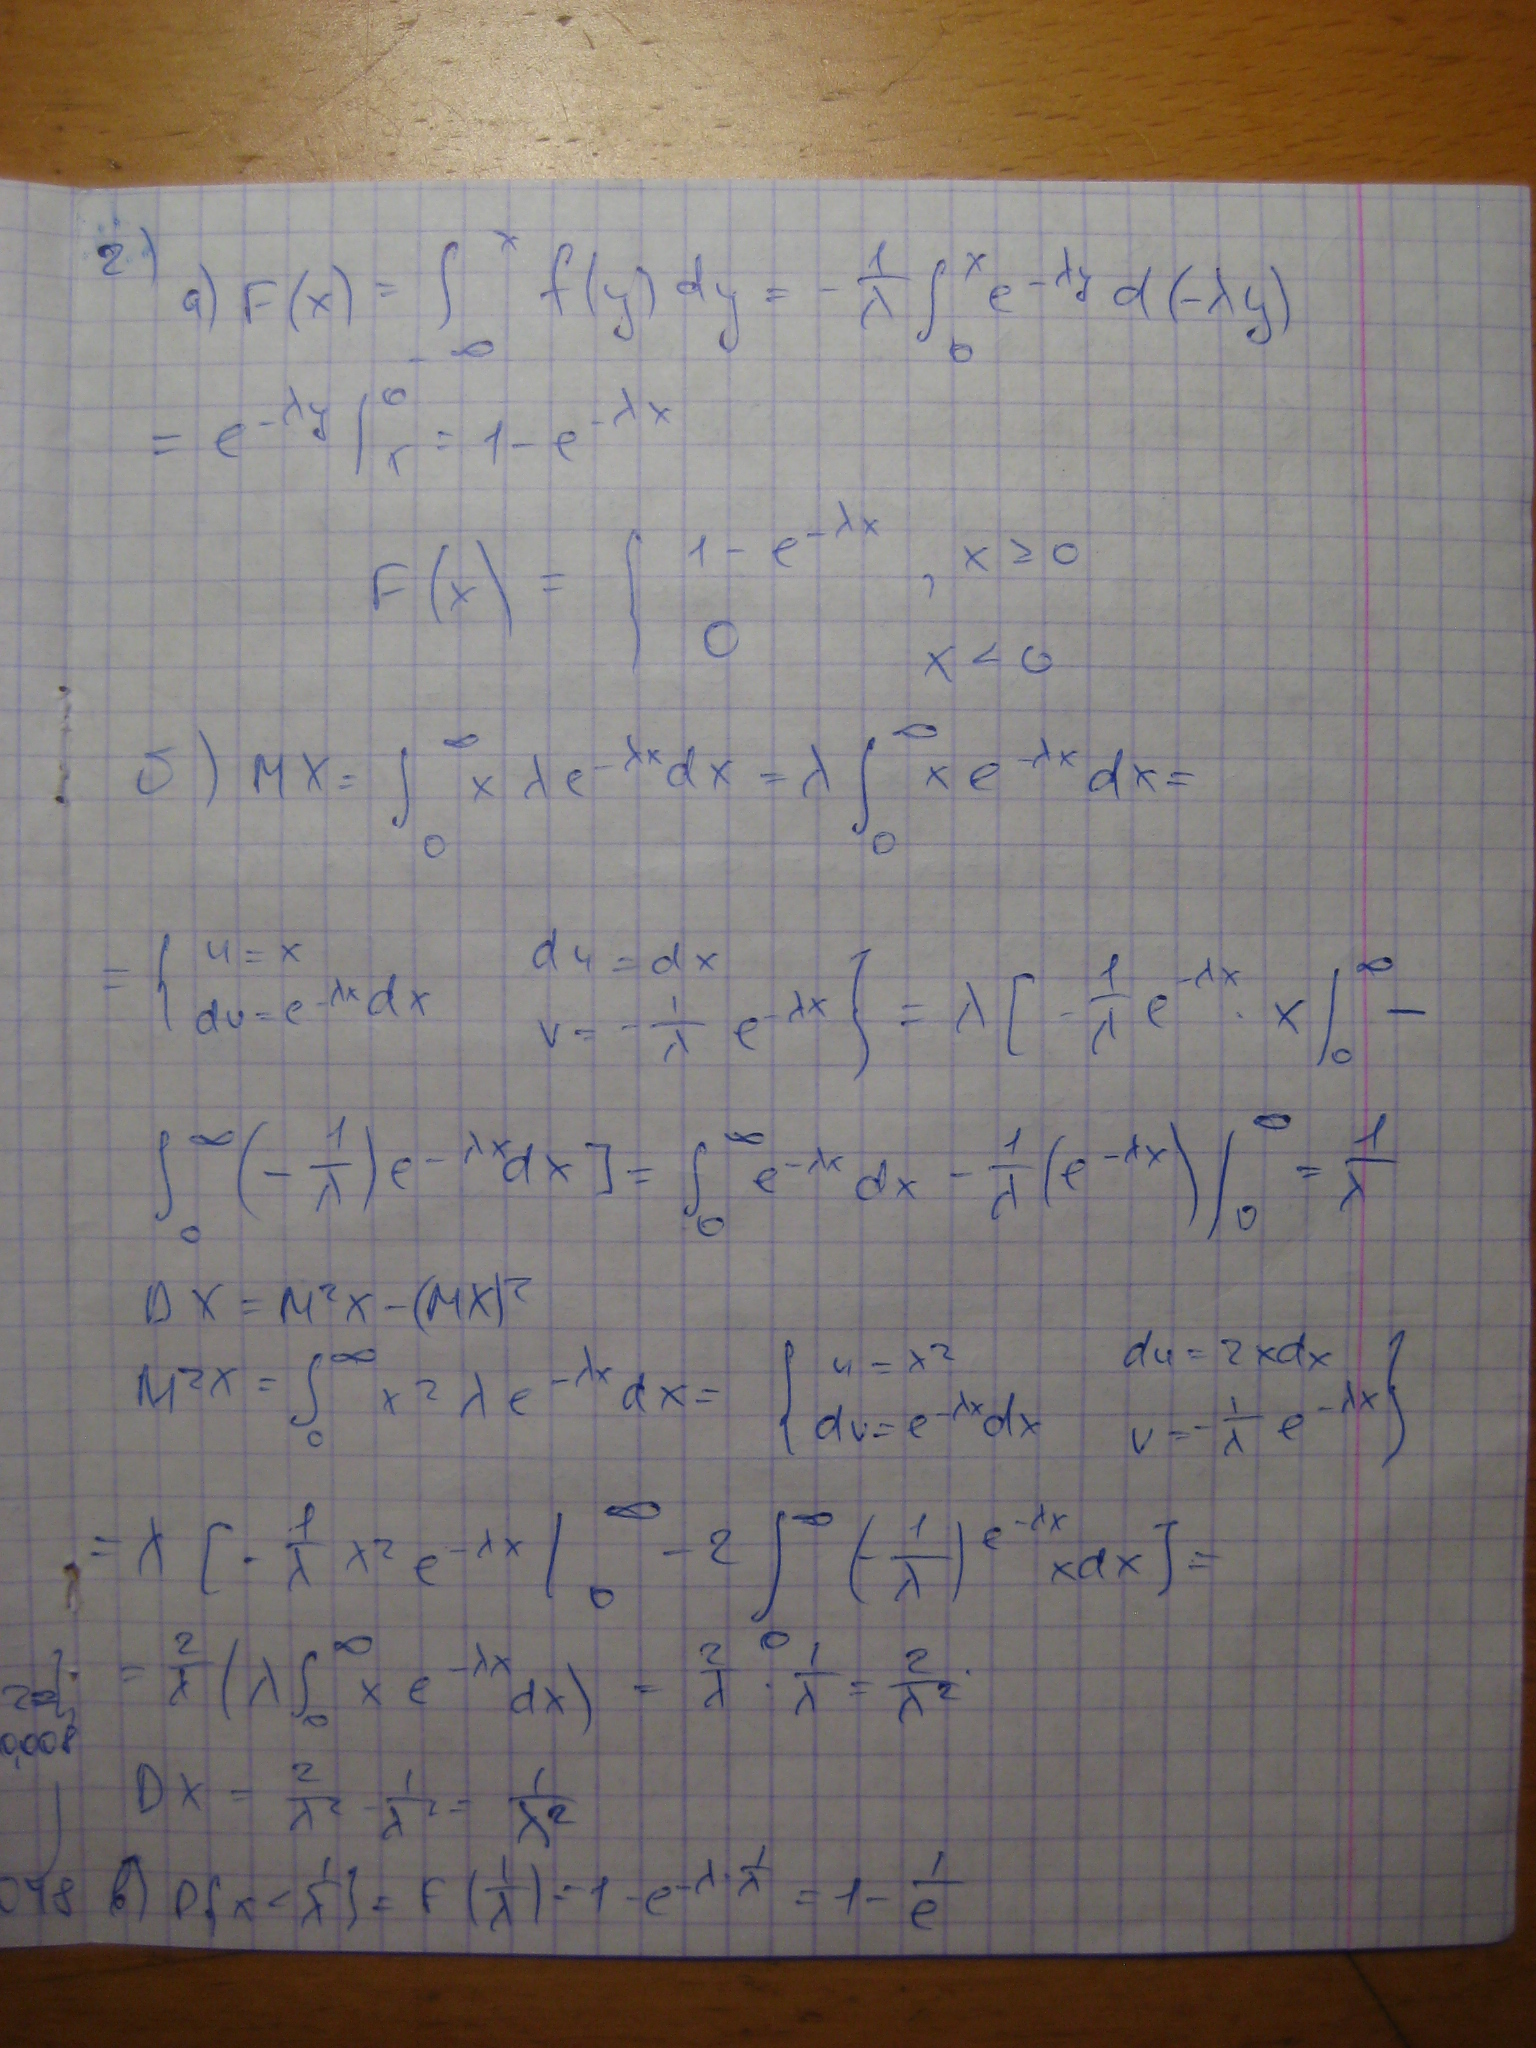 2)
а) F(x) = ∫_{-∞}^{x} f(y) dy = - 1/λ ∫_0^x e^{-λy} d(-λy)
= e^{-λy} |_x^0 = 1 - e^{-λx}
F(x) = { 1 - e^{-λx} , x ≥ 0
0 x < 0
б) MX = ∫_0^∞ x λ e^{-λx} dx = λ ∫_0^∞ x e^{-λx} dx =
= { u = x du = dx
dv = e^{-λx} dx v = - 1/λ e^{-λx} } = λ [ - 1/λ e^{-λx} · x |_0^∞ -
∫_0^∞ (- 1/λ) e^{-λx} dx ] = ∫_0^∞ e^{-λx} dx - 1/λ (e^{-λx}) |_0^∞ = 1/λ
DX = M²X - (MX)²
M²X = ∫_0^∞ x² λ e^{-λx} dx = { u = x² du = 2xdx
dv = e^{-λx} dx v = - 1/λ e^{-λx} }
= λ [ - 1/λ x² e^{-λx} |_0^∞ - 2 ∫_0^∞ (- 1/λ) e^{-λx} x dx ] =
= 2/λ (λ ∫_0^∞ x e^{-λx} dx) = 2/λ · 1/λ = 2/λ²
0,008
DX = 2/λ² - 1/λ² = 1/λ²
в) P{x < 1/λ} = F(1/λ) = 1 - e^{-λ · 1/λ} = 1 - 1/e